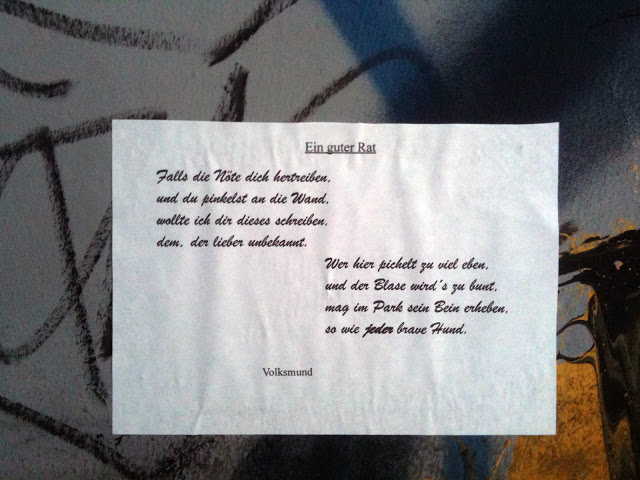 Ein guter Rat
Falls die Nöte dich hertreiben,
und du pinkelst an die Wand,
wollte ich dir dieses schreiben,
dem, der lieber unbekannt.
Wer hier pichelt zu viel eben,
und der Blase wird's zu bunt,
mag im Park sein Bein erheben,
so wie jeder brave Hund.
Volksmund